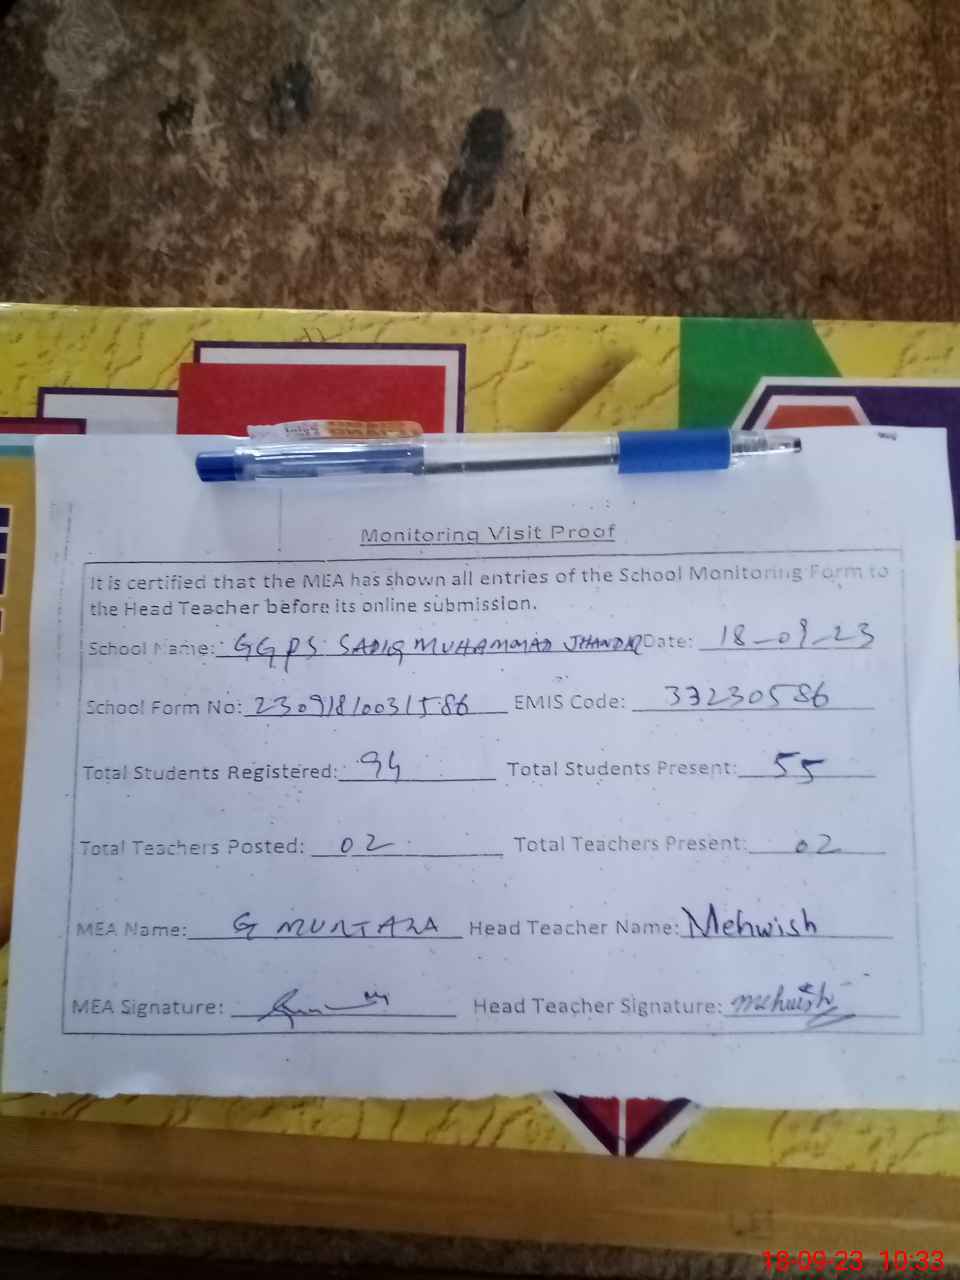 Monitoring Visit Proof
It is certified that the MEA has shown all entries of the School Monitoring Form to
the Head Teacher before its online submission.
School Name: GGPS SADIQ MUHAMMAD JHANDIR Date: 18-09-23
School Form No: 23091810031586 EMIS Code: 37230586
Total Students Registered: 94 Total Students Present: 55
Total Teachers Posted: 02 Total Teachers Present: 02
MEA Name: G MURTAZA Head Teacher Name: Mehwish
MEA Signature: Head Teacher Signature: Mehwish
18-09-23 10:33